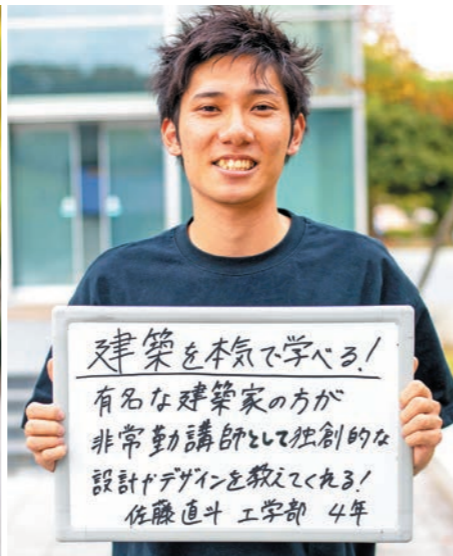 建築を本気で学べる!
有名な建築家の方が
非常勤講師として独創的な
設計やデザインを教えてくれる!
佐藤直斗 工学部 4年